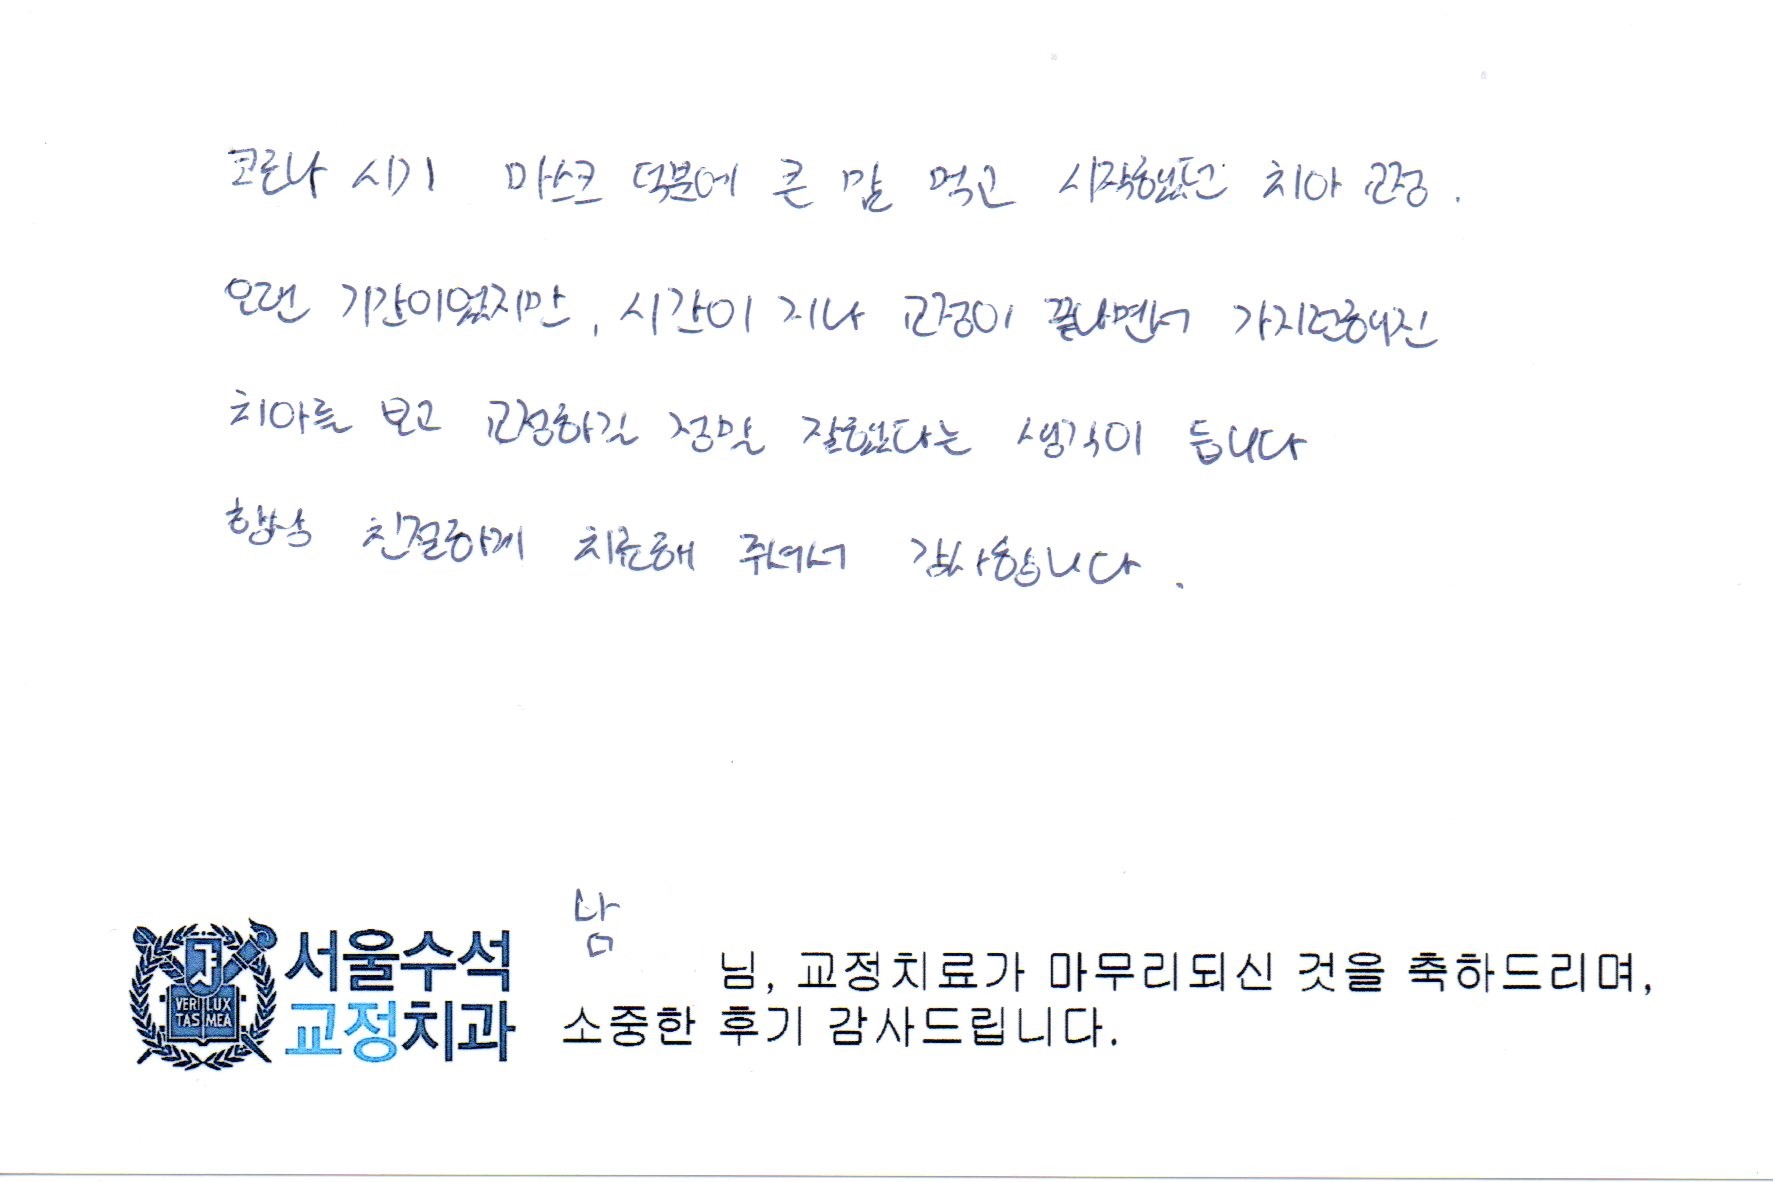 코로나 시기 마스크 덕분에 큰 맘 먹고 시작했던 치아 교정.
오랜 기간이었지만, 시간이 지나 교정이 끝나면서 가지런해진
치아를 보고 교정하길 정말 잘했다는 생각이 듭니다
항상 친절하게 치료해 줘서 감사합니다.
남
서울수석
교정치과
VERI LUX
TAS MEA
님, 교정치료가 마무리되신 것을 축하드리며,
소중한 후기 감사드립니다.